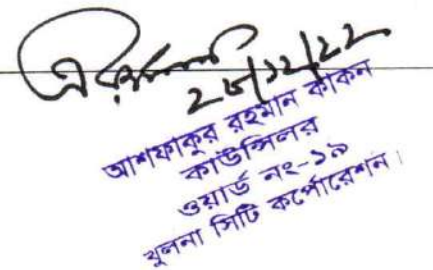 ২৮/১২/২২
আশফাকুর রহমান কাকন
কাউন্সিলর
ওয়ার্ড নং-১৯
খুলনা সিটি কর্পোরেশন।